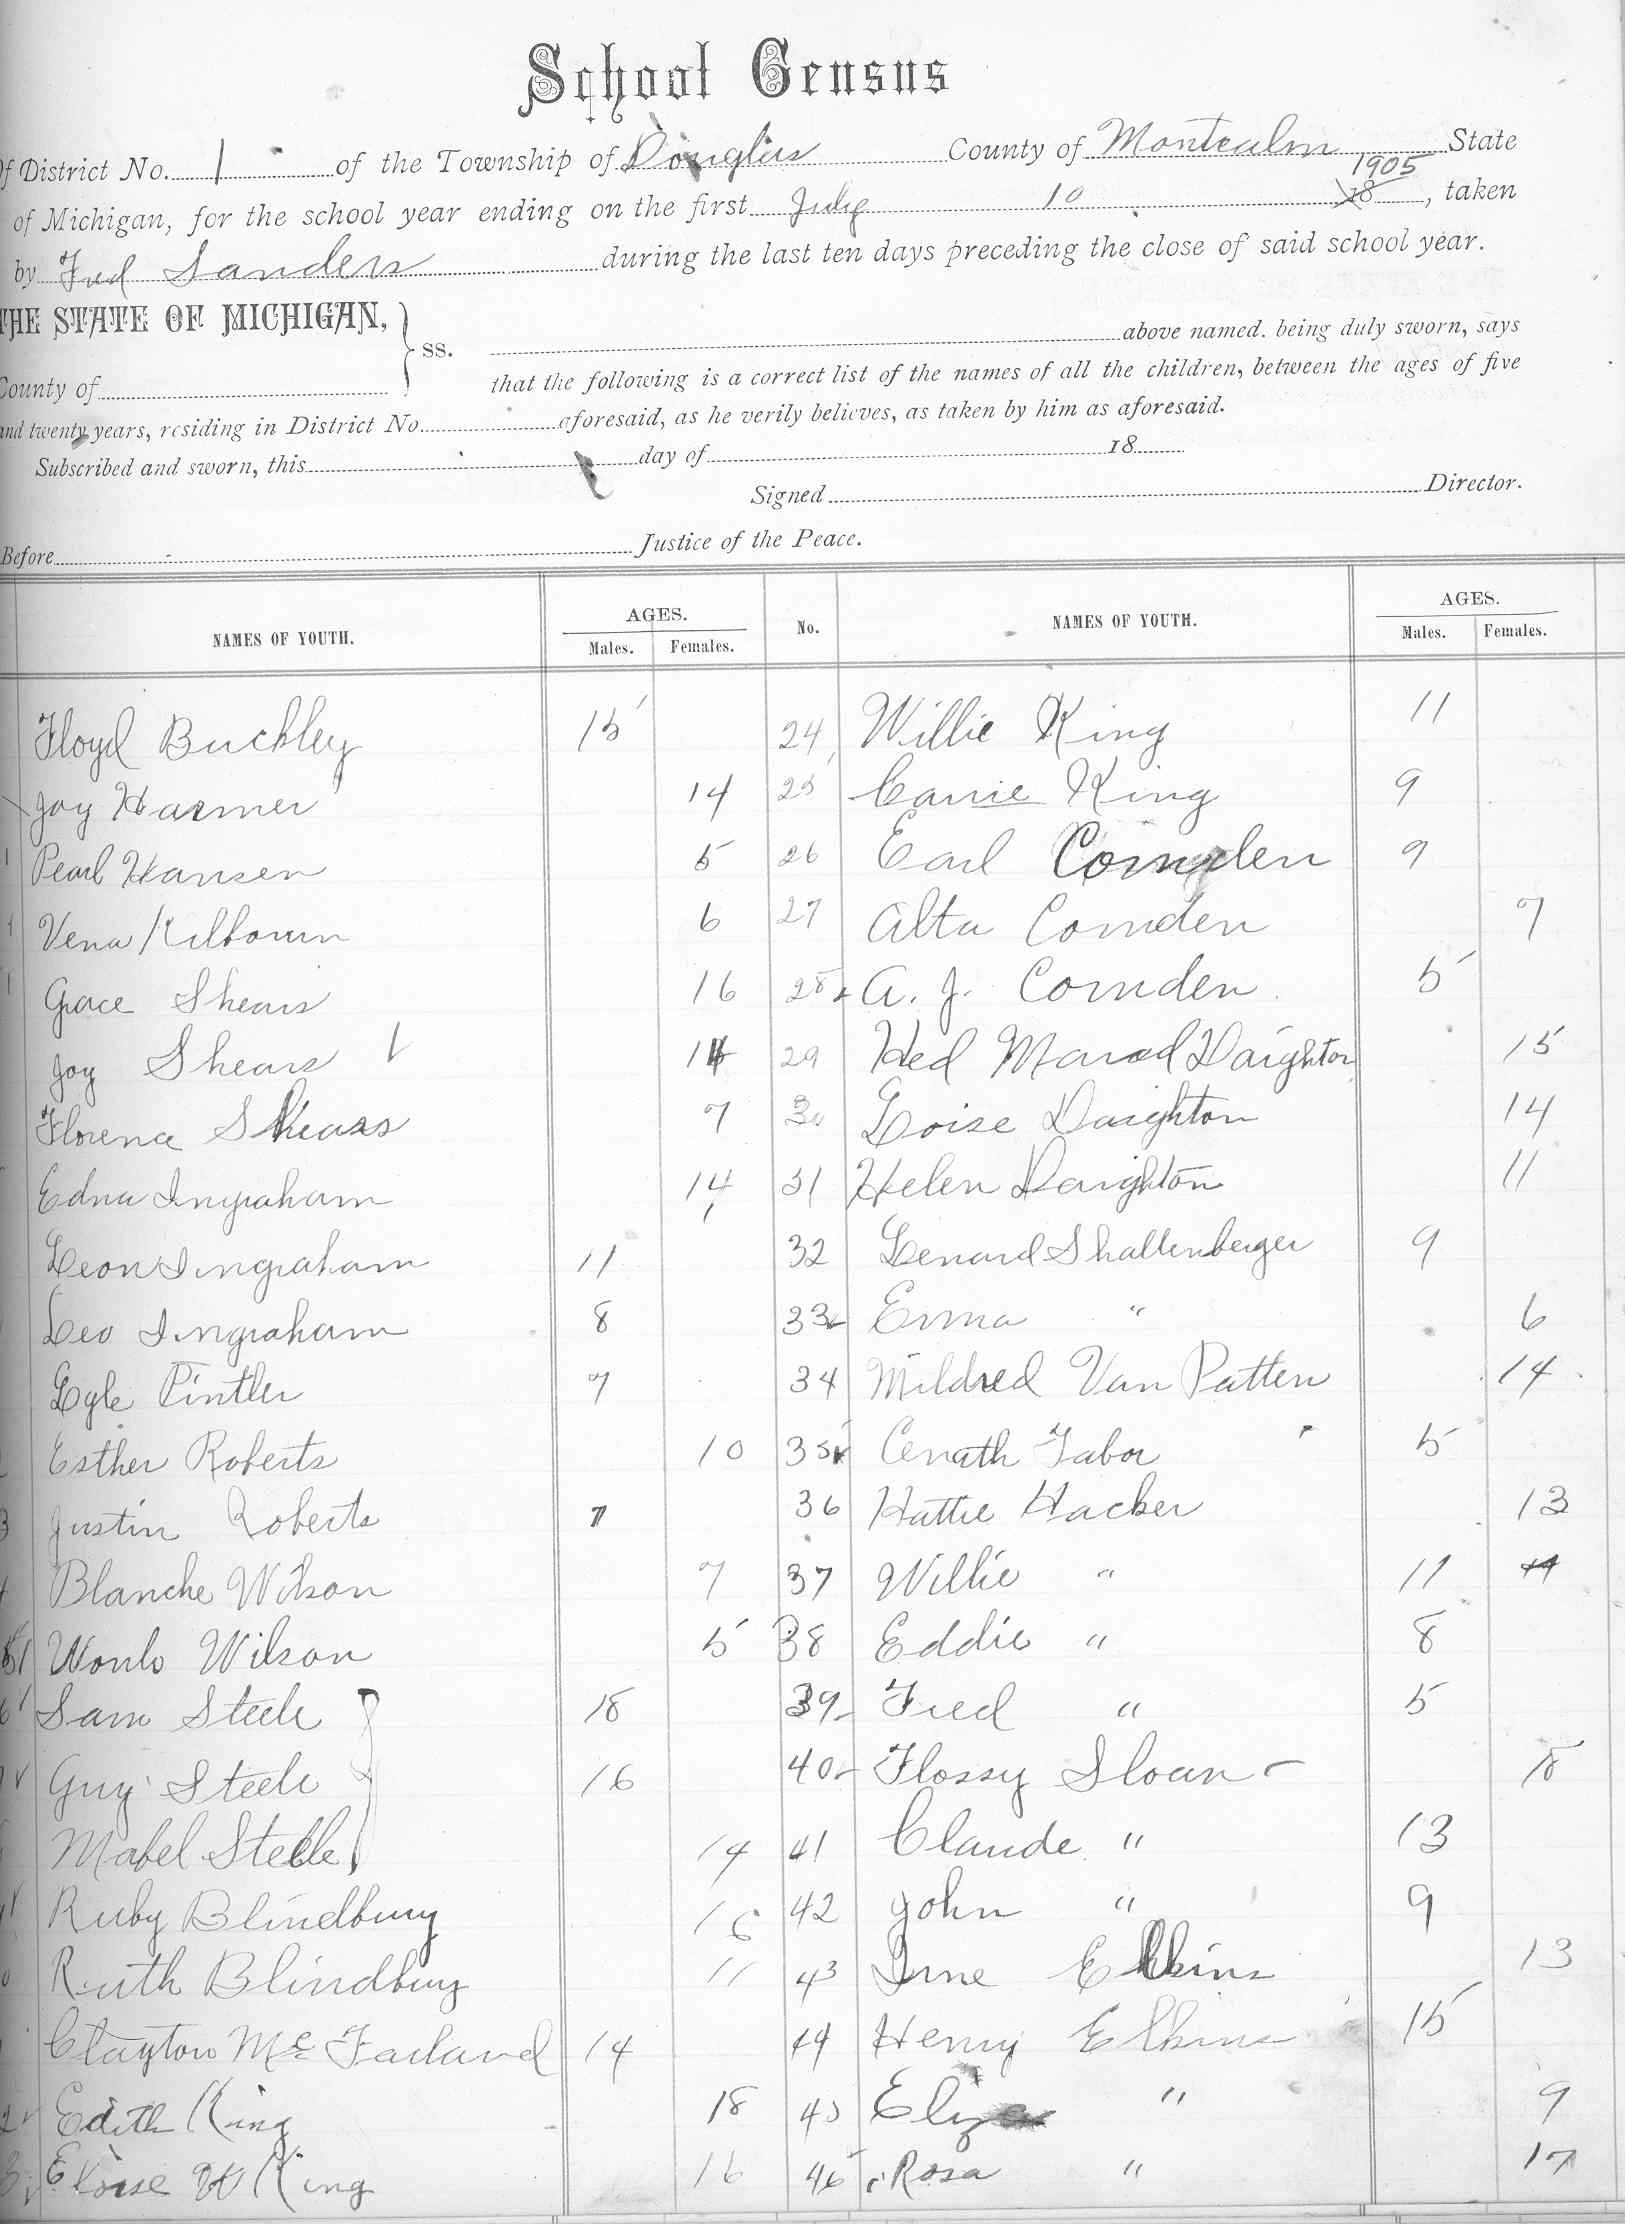 School Census
Of District No. 1 of the Township of Douglas County of Montcalm State
of Michigan, for the school year ending on the first July 10 18 1905, taken
by Fred Sanders during the last ten days preceding the close of said school year.
THE STATE OF MICHIGAN, } ss. above named. being duly sworn, says
County of that the following is a correct list of the names of all the children, between the ages of five
and twenty years, residing in District No. aforesaid, as he verily believes, as taken by him as aforesaid.
Subscribed and sworn, this day of 18
Signed Director.
Before Justice of the Peace.
NAMES OF YOUTH. AGES. Males. Females. No. NAMES OF YOUTH. AGES. Males. Females.
Floyd Buckley 15 24 Willie King 11
Joy Harmer 14 25 Carrie King 9
Pearl Hansen 5 26 Earl Comden 9
Vena Kilbourn 6 27 Alta Comden 7
Grace Shears 16 28 A. J. Comden 5
Joy Shears 29 Daighton 15
Florence Shears 7 30 Loise Daighton 14
Edna Ingraham 14 31 Helen Daighton 11
Leon Ingraham 11 32 Lenard Shallenberger 9
Leo Ingraham 8 33 Erma " 6
Lyle Pintler 7 34 Mildred Van Patten 14
Esther Roberts 10 35 Cenath Tabor 5
Justin Roberts 7 36 Hattie Hacker 13
Blanche Wilson 7 37 Willie " 11
Wilson 5 38 Eddie " 8
Sam Steele 18 39 Fred " 5
Guy Steele 16 40 Flossy Sloan 18
Mabel Steele 14 41 Claude " 13
Ruby Blindbury 16 42 John " 9
Ruth Blindbury 11 43 Irne Elkins 13
Clayton McFarland 14 44 Henry Elkins 15
Edith King 18 45 Eliza " 9
Eloise W King 16 46 Rosa " 17